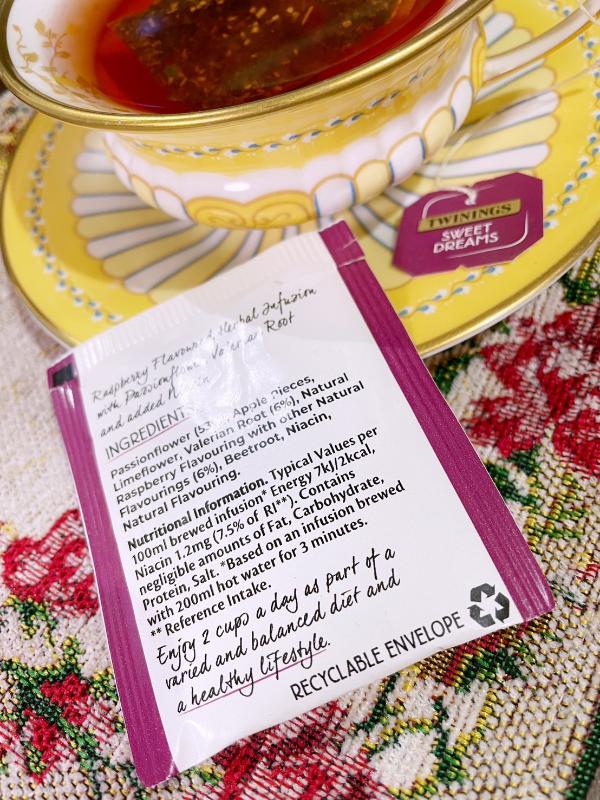 TWININGS
SWEET
DREAMS
Raspberry Flavoured Herbal Infusion
with Passionflower, Valerian Root
and added
INGREDIENTS
Apple Pieces,
Passionflower
Limeflower, Valerian Root (6%), Natural
Raspberry Flavouring with other Natural
Flavourings (6%), Beetroot, Niacin,
Natural Flavouring.
Nutritional Information. Typical Values per
100ml brewed infusion* Energy 7kJ/2kcal,
Niacin 1.2mg (7.5% of RI**). Contains
negligible amounts of Fat, Carbohydrate,
Protein, Salt. *Based on an infusion brewed
with 200ml hot water for 3 minutes.
** Reference Intake.
Enjoy 2 cups a day as part of a
varied and balanced diet and
a healthy lifestyle.
RECYCLABLE ENVELOPE